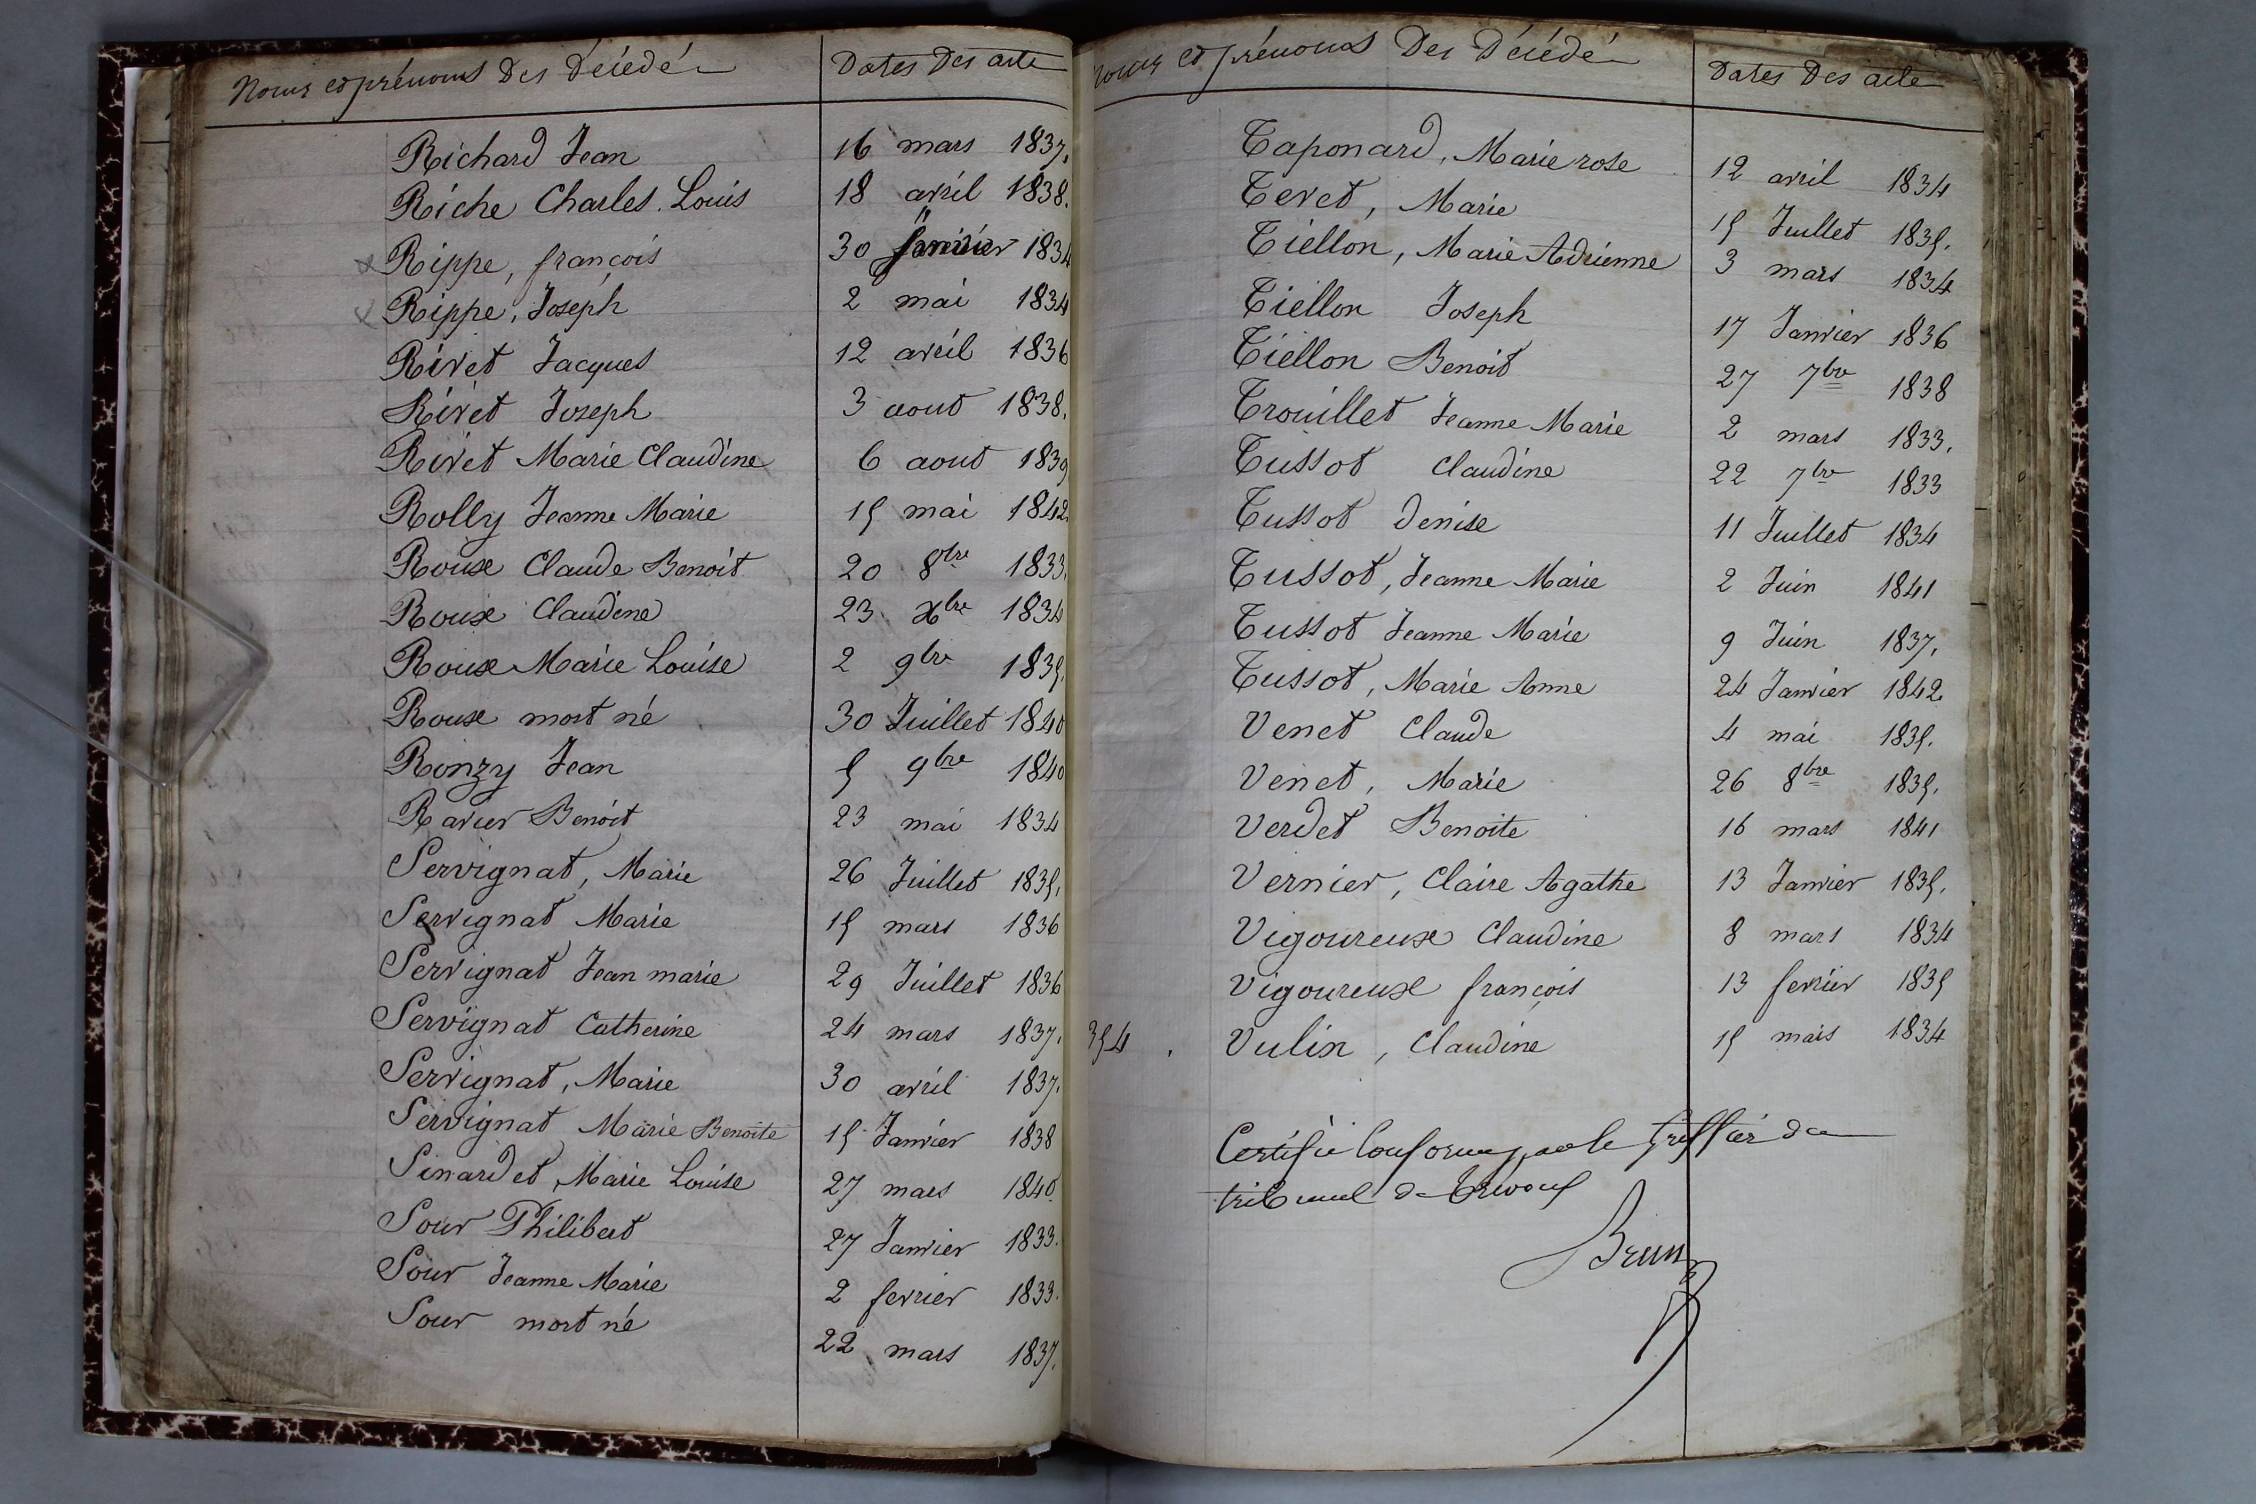 Noms et prénoms Des Décédés Dates Des actes
Richard Jean 16 mars 1837.
Riche Charles Louis 18 avril 1838.
Rippe, françois 30 1834
Rippe, Joseph 2 mai 1834
Rivet Jacques 12 avril 1836
Rivet Joseph 3 aout 1838.
Rivet Marie Claudine 6 aout 1839
Rolly Jeanne Marie 15 mai 1842
Roux Claude Benoit 20 8bre 1833.
Roux Claudine 23 xbre 1834
Roux Marie Louise 2 9bre 1835.
Roux mort né 30 Juillet 1840
Ronzy Jean 5 9bre 1840
Ravier Benoit 23 mai 1834
Servignat, Marie 26 Juillet 1835.
Servignat Marie 15 mars 1836
Servignat Jean marie 29 Juillet 1836
Servignat Catherine 24 mars 1837.
Servignat, Marie 30 avril 1837.
Servignat Marie Benoite 15 Janvier 1838
Sinardet, Marie Louise 27 mars 1840
Sour Philibert 27 Janvier 1833.
Sour Jeanne Marie 2 fevrier 1833.
Sour mort né 22 mars 1837.
Noms et prénoms Des Décédés Dates Des actes
Taponard, Marie rose 12 avril 1834
Tevet, Marie 15 Juillet 1835.
Tiellon, Marie Adrienne 3 mars 1834
Tiellon Joseph 17 Janvier 1836
Tiellon Benoit 27 7bre 1838
Trouillet Jeanne Marie 2 mars 1833.
Tussot Claudine 22 7bre 1833
Tussot Denise 11 Juillet 1834
Tussot, Jeanne Marie 2 Juin 1841
Tussot Jeanne Marie 9 Juin 1837.
Tussot, Marie Anne 24 Janvier 1842
Venet Claude 4 mai 1835.
Venet, Marie 26 8bre 1835.
Verdet Benoite 16 mars 1841
Vernier, Claire Agathe 13 Janvier 1835.
Vigoureux Claudine 8 mars 1834
Vigoureux françois 13 fevrier 1835
354 . Vulin, Claudine 15 mars 1834
Certifié Conforme par le Greffier du
tribunal de Trévoux
Brun